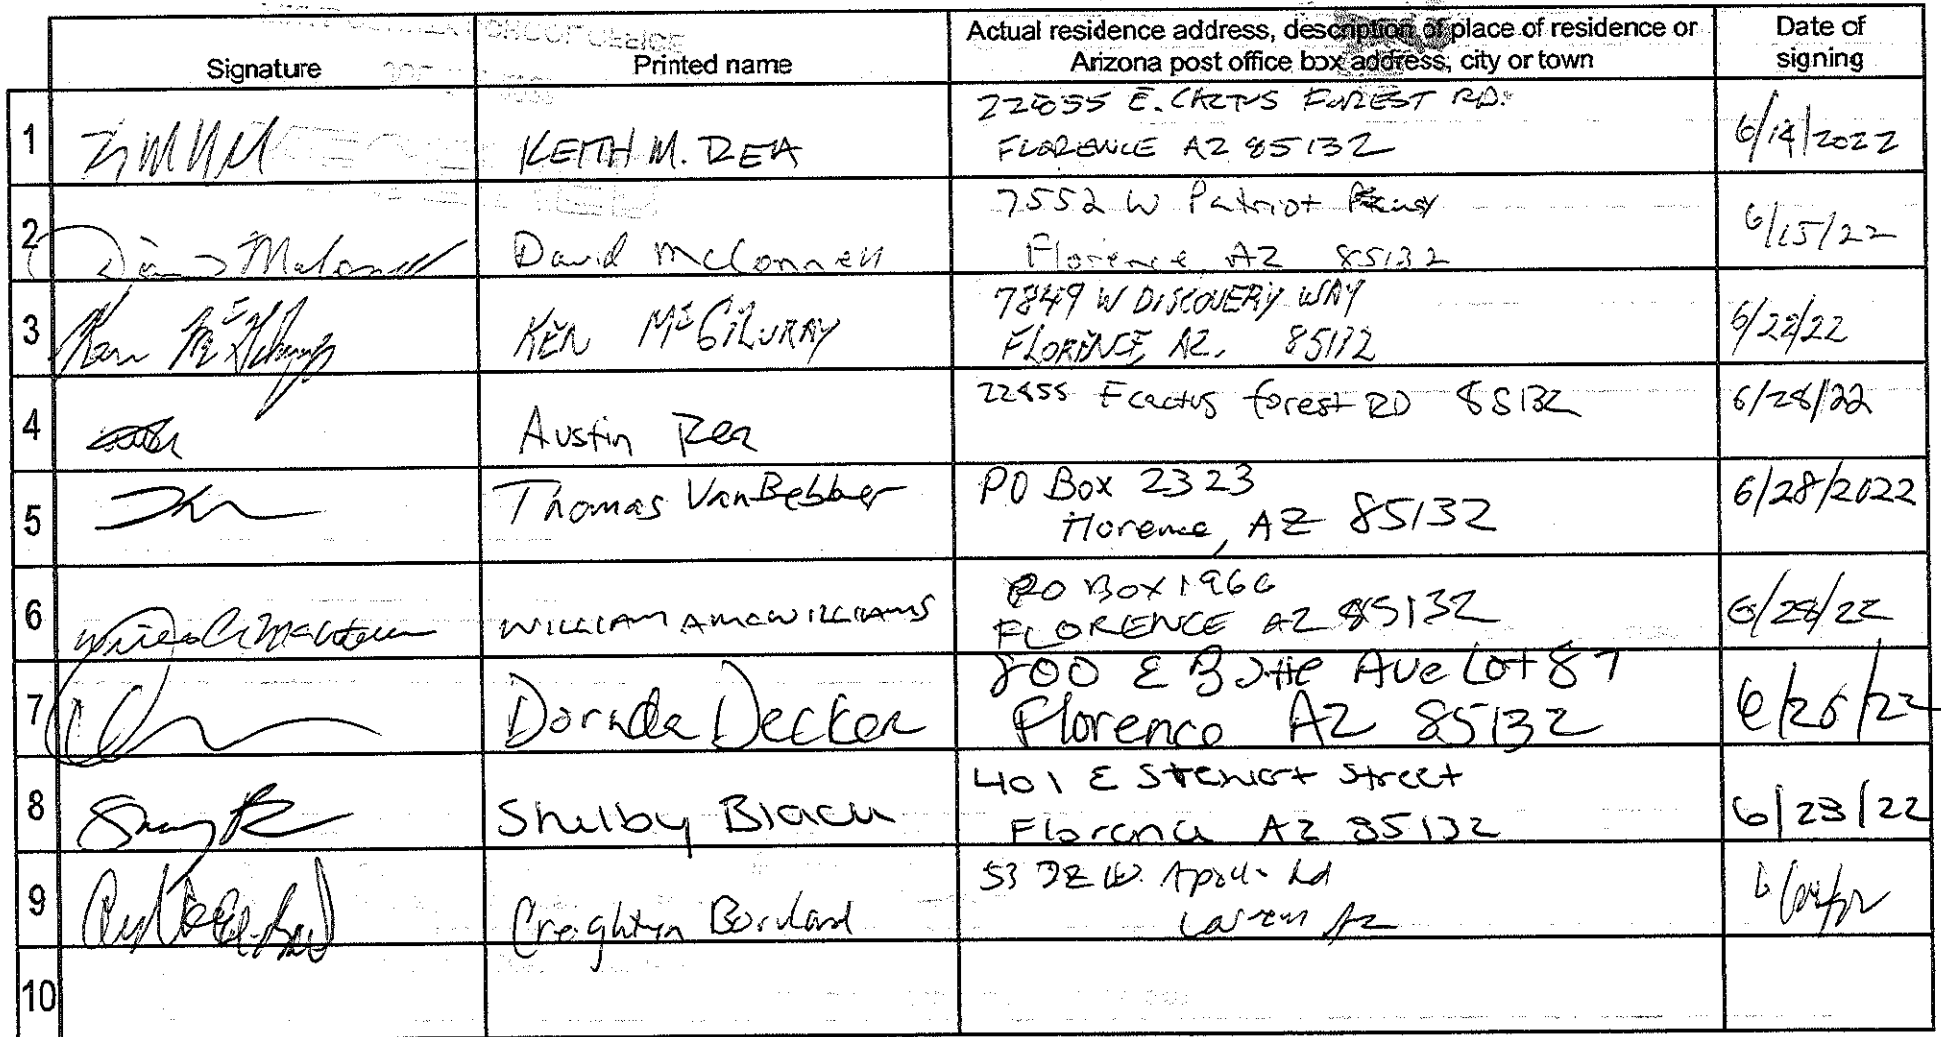 Signature
Printed name
Actual residence address, description of place of residence or
Arizona post office box address, city or town
Date of
signing
1
KEITH M. REA
E. CACTUS FOREST RD.
FLORENCE AZ 85132
6/14/2022
2
David McConnell
7552 W Patriot
Florence, AZ 85132
6/15/22
3
KEN McGILVRAY
7849 W DISCOVERY WAY
FLORENCE, AZ. 85132
6/22/22
4
Austin Rea
E cactus forest RD 85132
6/28/22
5
Thomas VanBebber
PO Box 2323
Florence, AZ 85132
6/28/2022
6
WILLIAM A MCWILLIAMS
PO Box 1966
FLORENCE AZ 85132
6/28/22
7
Decker
800 E Butte Ave Lot 87
Florence AZ 85132
8
Shelby Black
401 E Stewart Street
Florence AZ 85132
6/23/22
9
Creighton
W.
10